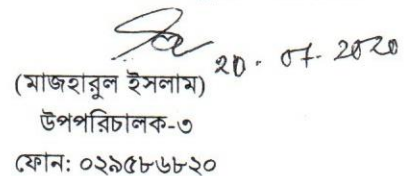 20.07.2020
(মাজহারুল ইসলাম)
উপপরিচালক-৩
ফোন: ০২৯৫৮৬৮২০